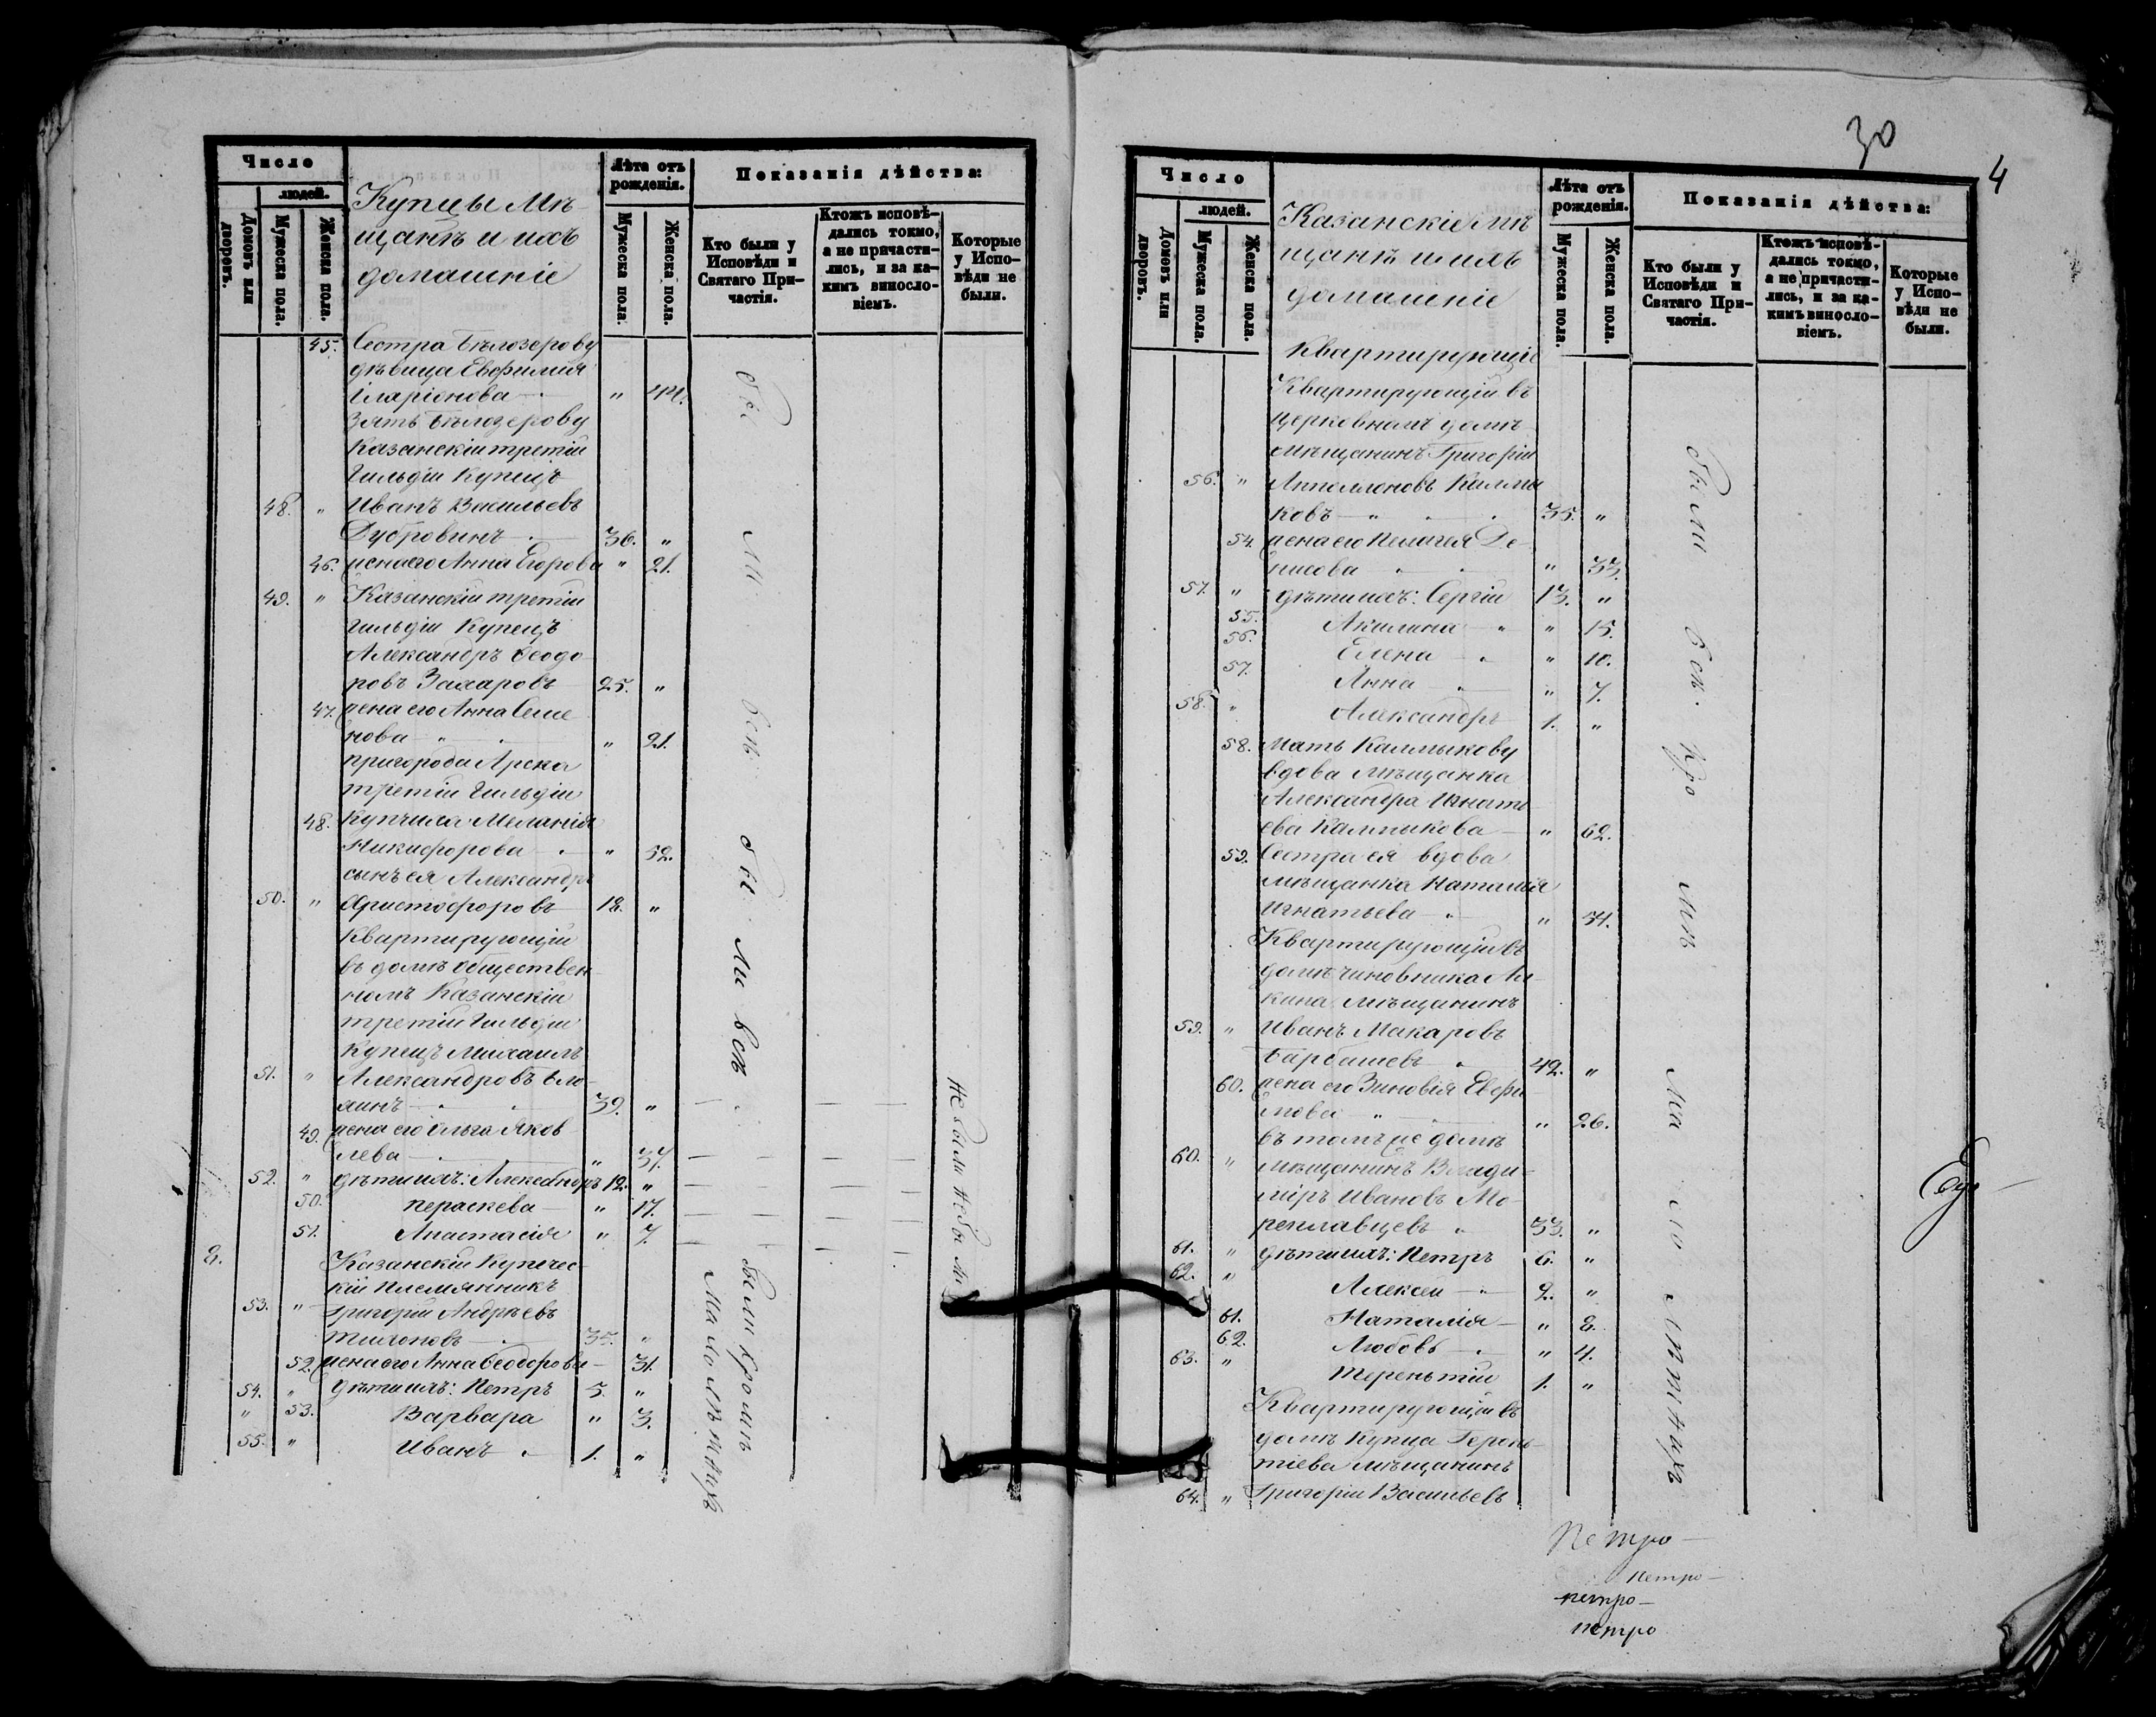 Число
людей.
Домовъ или дворовъ.
Мужеска пола.
Женска пола.
Купцы Мѣ-
щанѣ и ихъ
домашніе
Лѣта отъ
рожденія.
Мужеска пола.
Женска пола.
Показанія дѣйства:
Кто были у
Исповѣди и
Святаго При-
частія.
Ктожъ исповѣ-
дались токмо,
а не причасти-
лись, и за ка-
кимъ винослo-
віемъ.
Которые
у Испо-
вѣди не
были.
45. Сестра Бѣлозерову
дѣвица Евфимія
Іларіонова " 44.
Зять Бѣлозерову
Казанскій третій
Гильдіи Купецъ
48. " Иванъ Васильевъ
Дубровинъ 36. "
46. жена его Анна Егорова " 21.
49. " Казанскій третій
гильдіи Купецъ
Александръ Ѳеодо
ровъ Захаровъ 25. "
47. жена его Анна Семе
нова " 21.
пригорода Арска
третій Гильдіи
48. Купчиха Меланія
Никифорова " 52.
сынъ ея Александръ
50. " Христофоровъ 18. "
Квартирующій
въ домѣ обществен-
номъ Казанскій
третій Гильдіи
Купецъ Михаилъ
51. " Александровъ
39. "
49. жена его Ольга Яков
лева " 37.
52. " дѣти ихъ: Александръ 12. "
50. Параскева " 17.
51. Анастасія " 7.
8. Казанскій Купечес-
кій Племянникъ
53. " Григорій Андреевъ
Тихоновъ 35. "
52. жена его Анна Ѳеодорова 31.
54. " дѣти ихъ: Петръ 5. "
" 53. Варвара " 3.
55. " Иванъ 1. "
бы ли всѣ бы ли всѣ
не были не были
были кромѣ
малолѣтныхъ
30
4
Число
людей.
Домовъ или дворовъ.
Мужеска пола.
Женска пола.
Казанскіе мѣ
щанѣ и ихъ
домашніе
Лѣта отъ
рожденія.
Мужеска пола.
Женска пола.
Показанія дѣйства:
Кто были у
Исповѣди и
Святаго При-
частія.
Ктожъ исповѣ-
дались токмо,
а не причасти-
лись, и за ка-
кимъ винослo-
віемъ.
Которые
у Испо-
вѣди не
были.
Квартирующіе
Квартирующій въ
церковномъ домѣ
мѣщанинъ Григорій
56. " Апполлоновъ Калмы
ковъ 35. "
54. жена его Пелагея Де
нисова " 33.
57. " дѣти ихъ: Сергій 13. "
55. Акилина " 15.
56. Елена " 10.
57. Анна " 7.
58. " Александръ 1. "
58. Мать Калмыкову
вдова мѣщанка
Александра Игнать
ева Калмыкова " 62.
59. Сестра ея вдова
мѣщанка Наталія
Игнатьева " 54.
Квартирующій въ
домѣ чиновника
кина мѣщанинъ
59. " Иванъ Макаровъ
Барбашевъ 42. "
60. жена его Зиновія Евфи
мова " 26.
въ томъ же домѣ
60. " мѣщанинъ Влади-
міръ Ивановъ Мо-
реплавцевъ 33. "
61. " дѣти ихъ: Петръ 6. "
62. " Алексей 2. "
61. Наталія " 8.
62. Любовь " 4.
63. " Терентій 1. "
Квартирующій въ
домѣ купца Геронь-
тіева мѣщанинъ
64. " Григорій Васильевъ
были всѣ кро мѣ ма ло лѣтныхъ
Петро-
петро-
петро-
петро